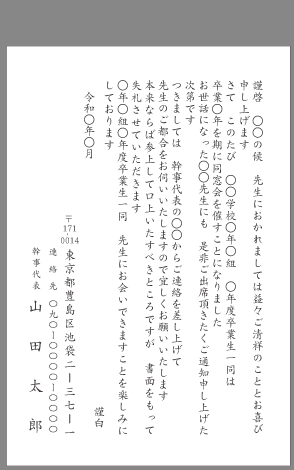 謹啓　〇〇の候　先生におかれましては益々ご清祥のこととお喜び
申し上げます
さて　このたび　〇〇学校〇年〇組　〇年度卒業生一同は
卒業〇年を期に同窓会を催すことになりました
お世話になった〇〇先生にも　是非ご出席頂きたくご通知申し上げた
次第です
つきましては　幹事代表の〇〇からご連絡を差し上げて
先生のご都合をお伺いいたしますので宜しくお願いいたします
本来ならば参上して口上いたすべきところですが　書面をもって
失礼させていただきます
〇年〇組〇年度卒業生一同　先生にお会いできますことを楽しみに
しております
謹白
令和〇年〇月
〒171
0014
東京都豊島区池袋二ー三七ー一
連絡先　〇九〇ー〇〇〇〇ー〇〇〇〇
幹事代表　山田太郎